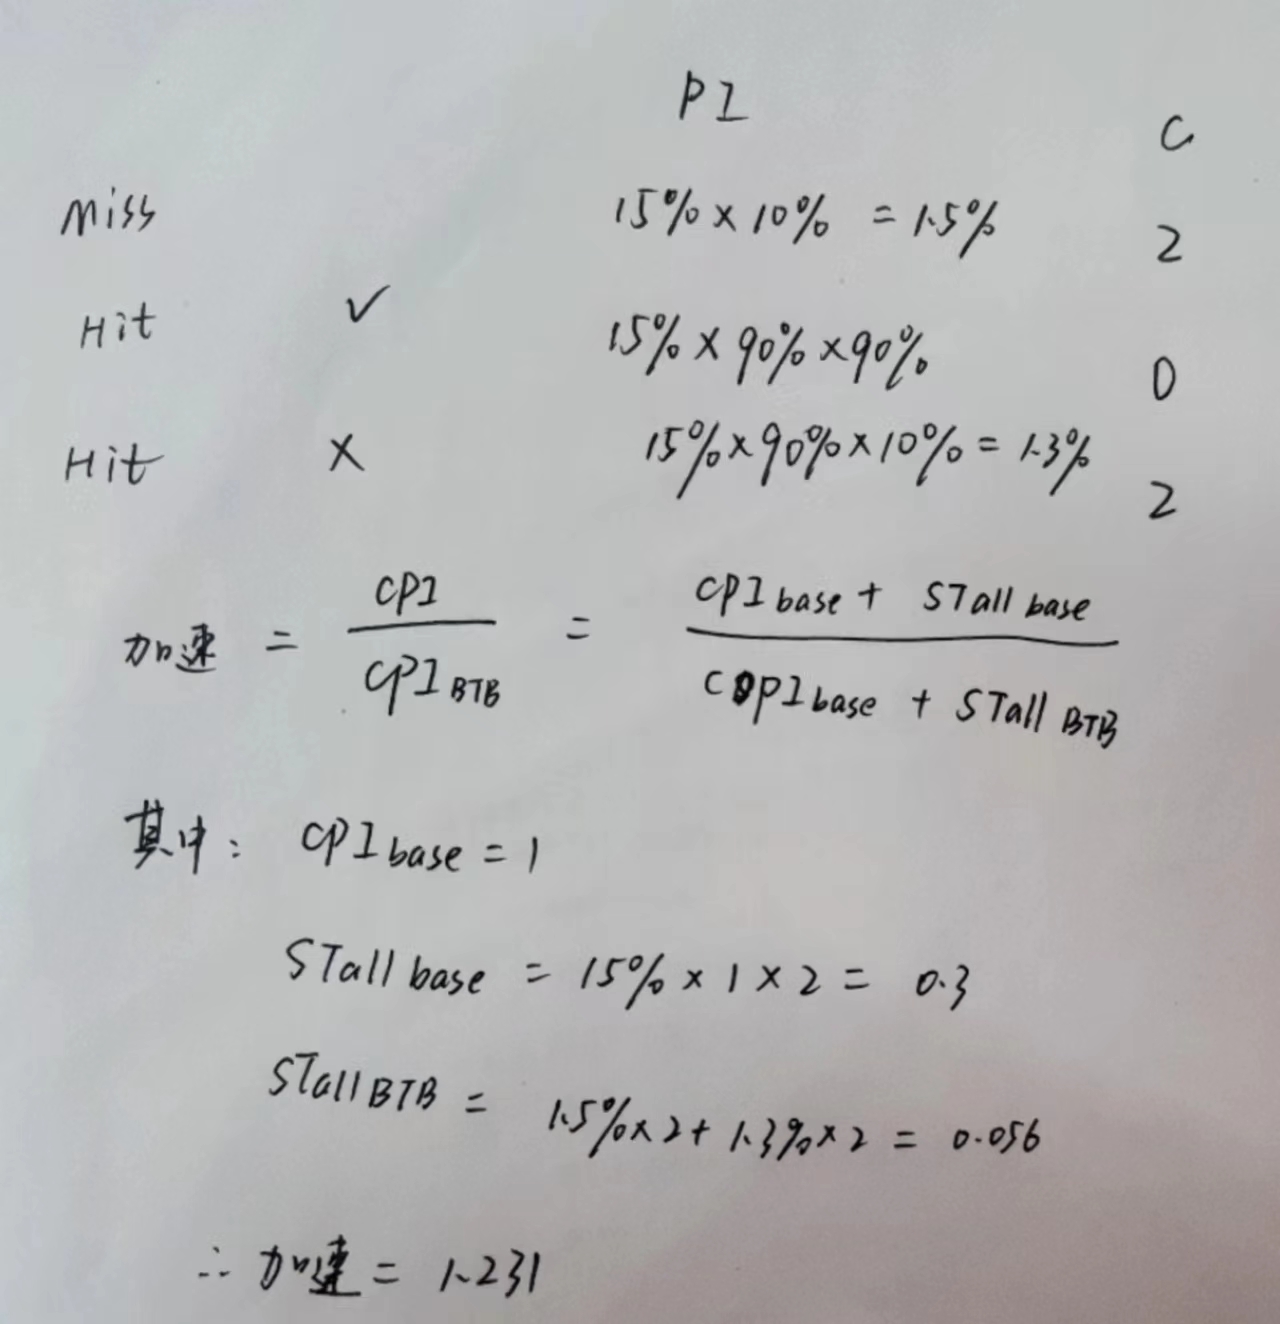 PI C
Miss 15% × 10% = 1.5% 2
Hit ✓ 15% × 90% × 90% 0
Hit × 15% × 90% × 10% = 1.3% 2
加速 = CPI / CPI BTB = CPI base + STall base / CPI base + STall BTB
其中: CPI base = 1
STall base = 15% × 1 × 2 = 0.3
STall BTB = 1.5% × 2 + 1.3% × 2 = 0.056
∴ 加速 = 1.231